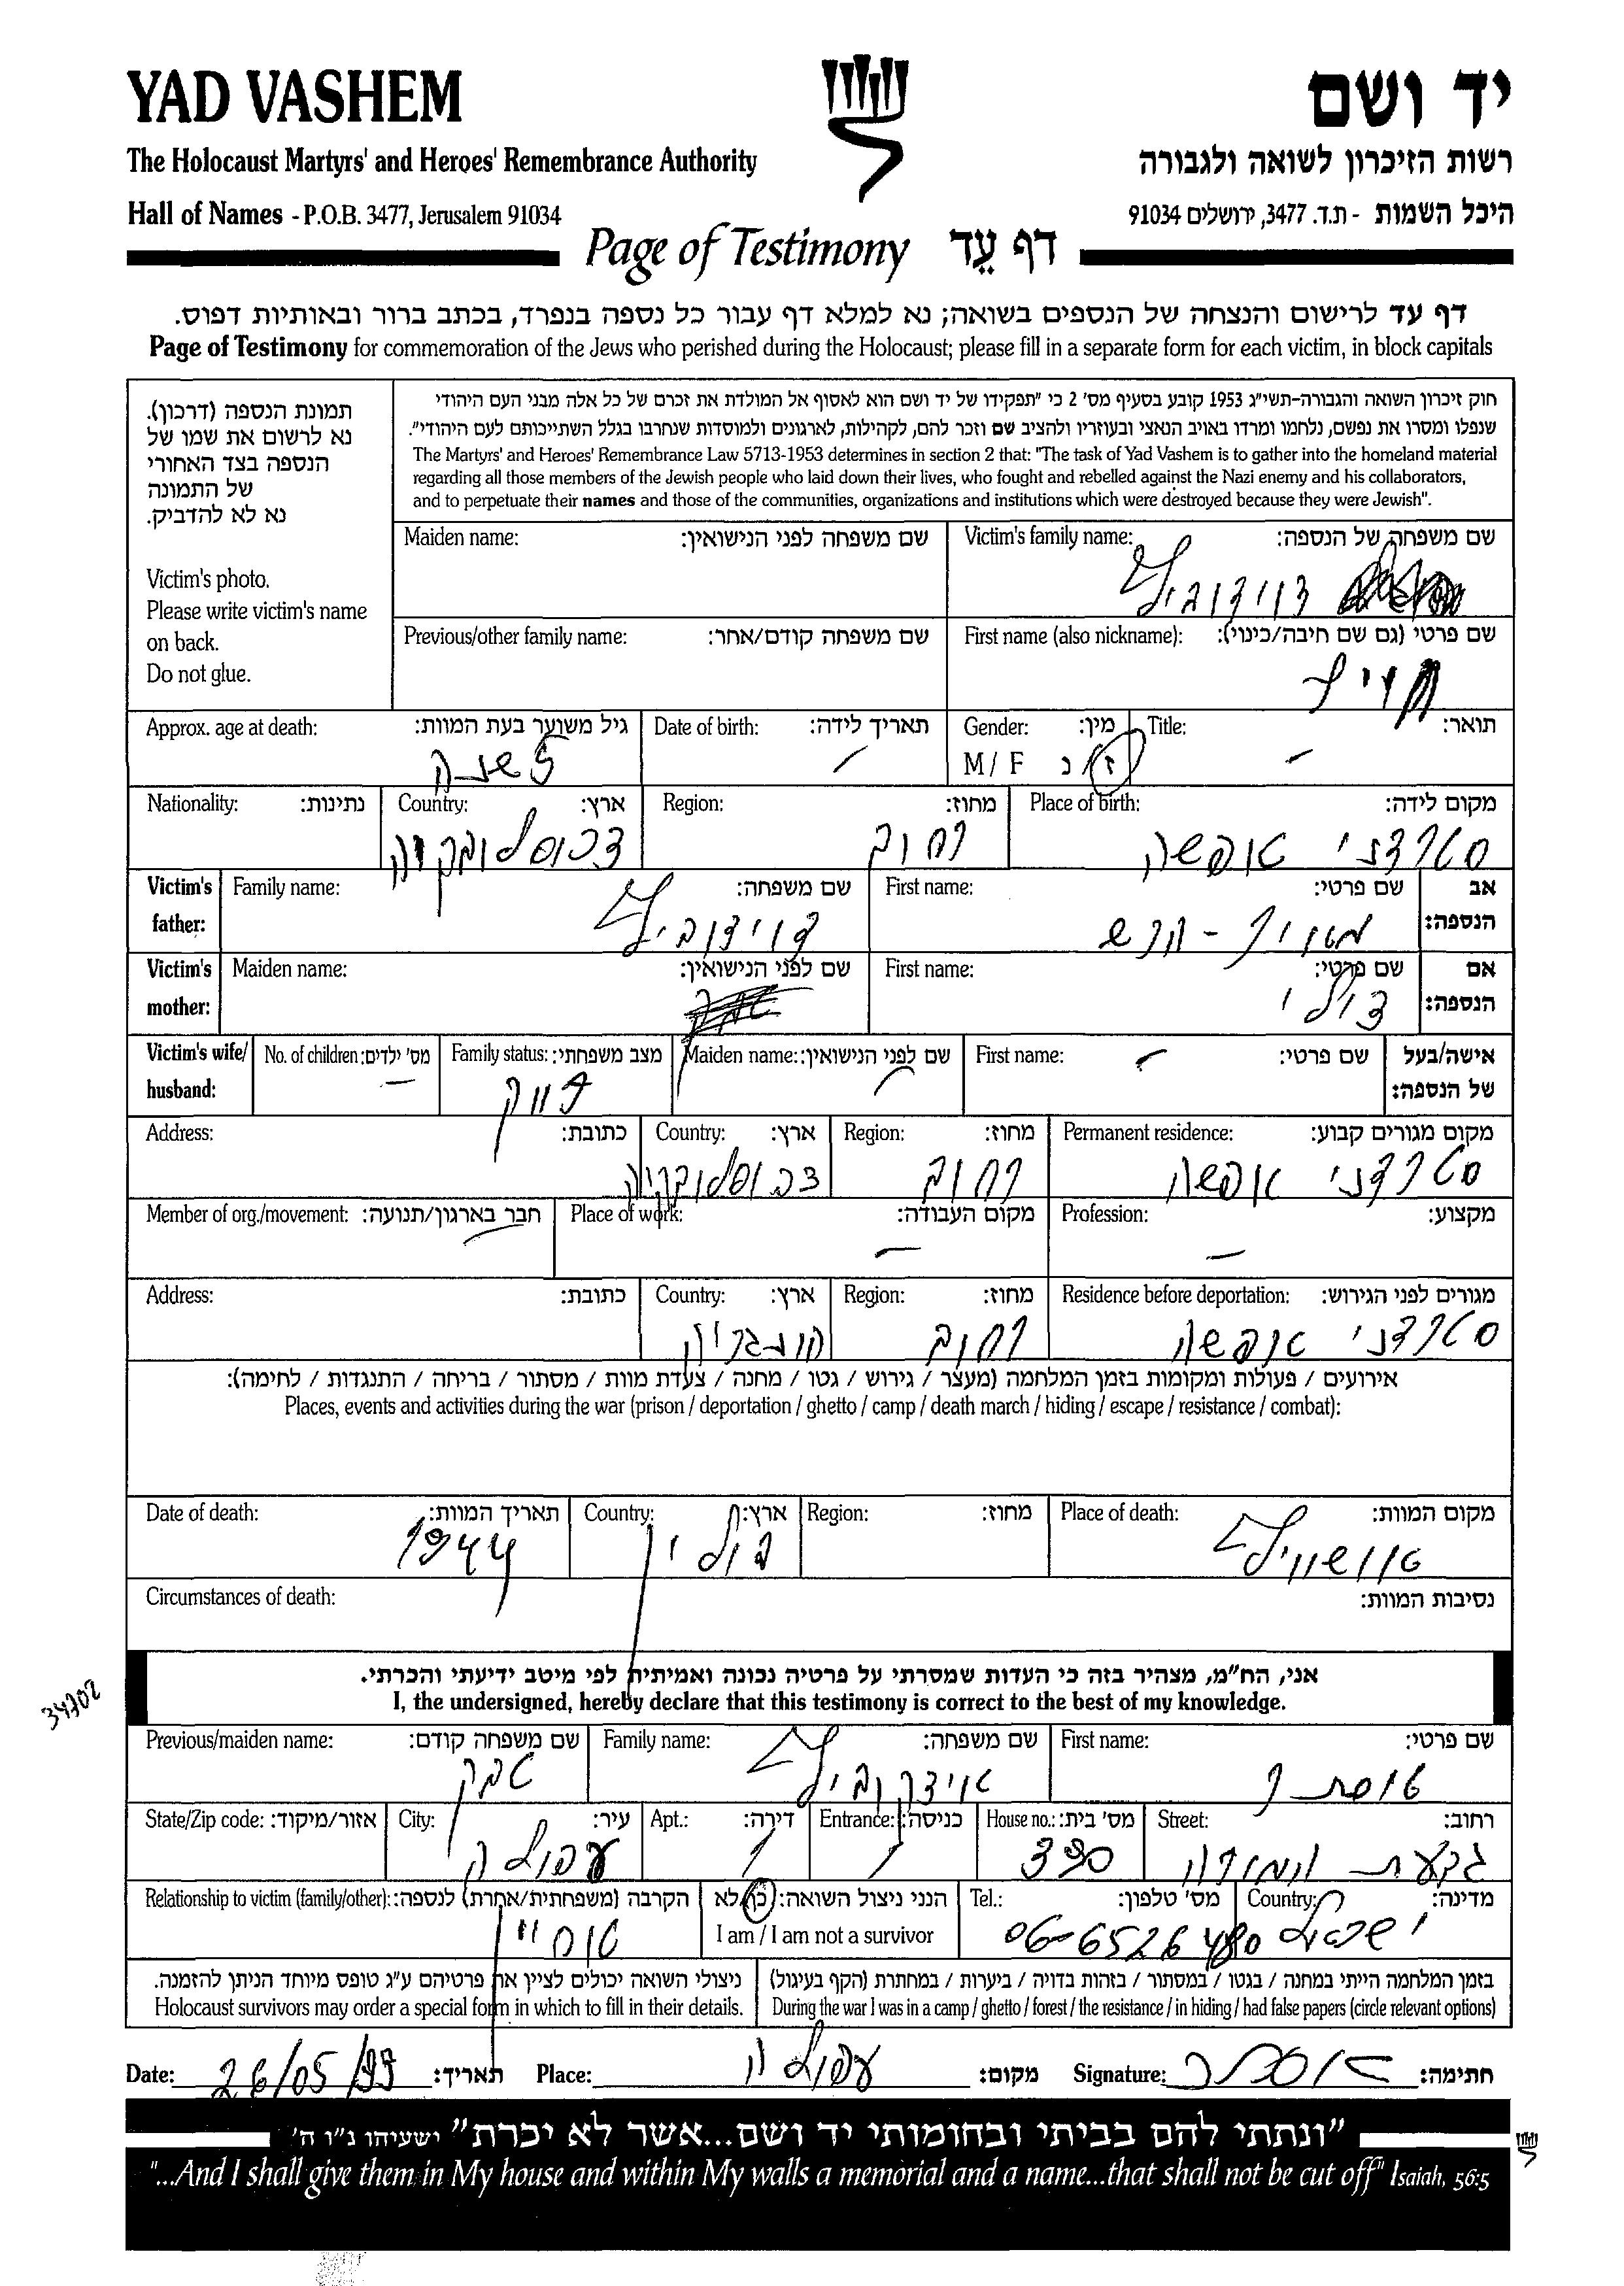 YAD VASHEM
יד ושם
The Holocaust Martyrs' and Heroes' Remembrance Authority
רשות הזיכרון לשואה ולגבורה
Hall of Names - P.O.B. 3477, Jerusalem 91034
היכל השמות - ת.ד. 3477, ירושלים 91034
Page of Testimony דף עֵד
דף עד לרישום והנצחה של הנספים בשואה; נא למלא דף עבור כל נספה בנפרד, בכתב ברור ובאותיות דפוס.
Page of Testimony for commemoration of the Jews who perished during the Holocaust; please fill in a separate form for each victim, in block capitals
תמונת הנספה (דרכון).
נא לרשום את שמו של
הנספה בצד האחורי
של התמונה
נא לא להדביק.
Victim's photo.
Please write victim's name
on back.
Do not glue.
חוק זיכרון השואה והגבורה-תשי"ג 1953 קובע בסעיף מס' 2 כי "תפקידו של יד ושם הוא לאסוף אל המולדת את זכרם של כל אלה מבני העם היהודי
שנפלו ומסרו את נפשם, נלחמו ומרדו באויב הנאצי ובעוזריו ולהציב שם וזכר להם, לקהילות, לארגונים ולמוסדות שנחרבו בגלל השתייכותם לעם היהודי".
The Martyrs' and Heroes' Remembrance Law 5713-1953 determines in section 2 that: "The task of Yad Vashem is to gather into the homeland material
regarding all those members of the Jewish people who laid down their lives, who fought and rebelled against the Nazi enemy and his collaborators,
and to perpetuate their names and those of the communities, organizations and institutions which were destroyed because they were Jewish".
Victim's family name: שם משפחה של הנספה:
דוידוביץ
Maiden name: שם משפחה לפני הנישואין:
First name (also nickname): שם פרטי (גם שם חיבה/כינוי):
Previous/other family name: שם משפחה קודם/אחר:
Title: תואר:
-
Gender: מין:
M / F ז/נ
Date of birth: תאריך לידה:
-
Approx. age at death: גיל משוער בעת המוות:
Place of birth: מקום לידה:
סטרדני אפשה
Region: מחוז:
רחוב
Country: ארץ:
צכוסלובקיה
Nationality: נתינות:
Victim's father: אב הנספה:
First name: שם פרטי:
Family name: שם משפחה:
דוידוביץ
Victim's mother: אם הנספה:
First name: שם פרטי:
Maiden name: שם לפני הנישואין:
Victim's wife/ husband: אישה/בעל של הנספה:
First name: שם פרטי:
-
Maiden name: שם לפני הנישואין:
-
Family status: מצב משפחתי:
No. of children: מס' ילדים:
-
Permanent residence: מקום מגורים קבוע:
סטרדני אפשה
Region: מחוז:
רחוב
Country: ארץ:
צכוסלובקיה
Address: כתובת:
Profession: מקצוע:
-
Place of work: מקום העבודה:
-
Member of org./movement: חבר בארגון/תנועה:
-
Residence before deportation: מגורים לפני הגירוש:
סטרדני אפשה
Region: מחוז:
רחוב
Country: ארץ:
הונגריה
Address: כתובת:
אירועים / פעולות ומקומות בזמן המלחמה (מעצר / גירוש / גטו / מחנה / צעדת מוות / מסתור / בריחה / התנגדות / לחימה):
Places, events and activities during the war (prison / deportation / ghetto / camp / death march / hiding / escape / resistance / combat):
Place of death: מקום המוות:
אושוויץ
Region: מחוז:
Country: ארץ:
פולין
Date of death: תאריך המוות:
1944
Circumstances of death: נסיבות המוות:
אני, הח"מ, מצהיר בזה כי העדות שמסרתי על פרטיה נכונה ואמיתית לפי מיטב ידיעתי והכרתי.
I, the undersigned, hereby declare that this testimony is correct to the best of my knowledge.
34702
First name: שם פרטי:
אסתר
Family name: שם משפחה:
איצקוביץ
Previous/maiden name: שם משפחה קודם:
Street: רחוב:
גבעת המורה
House no.: מס' בית:
390
Entrance: כניסה:
1
Apt.: דירה:
1
City: עיר:
עפולה
State/Zip code: אזור/מיקוד:
Country: מדינה:
ישראל
Tel.: מס' טלפון:
06-6526480
הנני ניצול השואה: כן/לא
I am / I am not a survivor
Relationship to victim (family/other): הקרבה (משפחתית/אחרת) לנספה:
בזמן המלחמה הייתי במחנה / בגטו / במסתור / בזהות בדויה / ביערות / במחתרת (הקף בעיגול)
During the war I was in a camp / ghetto / forest / the resistance / in hiding / had false papers (circle relevant options)
ניצולי השואה יכולים לציין את פרטיהם ע"ג טופס מיוחד הניתן להזמנה.
Holocaust survivors may order a special form in which to fill in their details.
Date: 26/05/99 תאריך: Place: עפולה מקום: Signature: חתימה:
"ונתתי להם בביתי ובחומותי יד ושם...אשר לא יכרת" ישעיהו נ"ו ה'
"...And I shall give them in My house and within My walls a memorial and a name...that shall not be cut off" Isaiah, 56:5